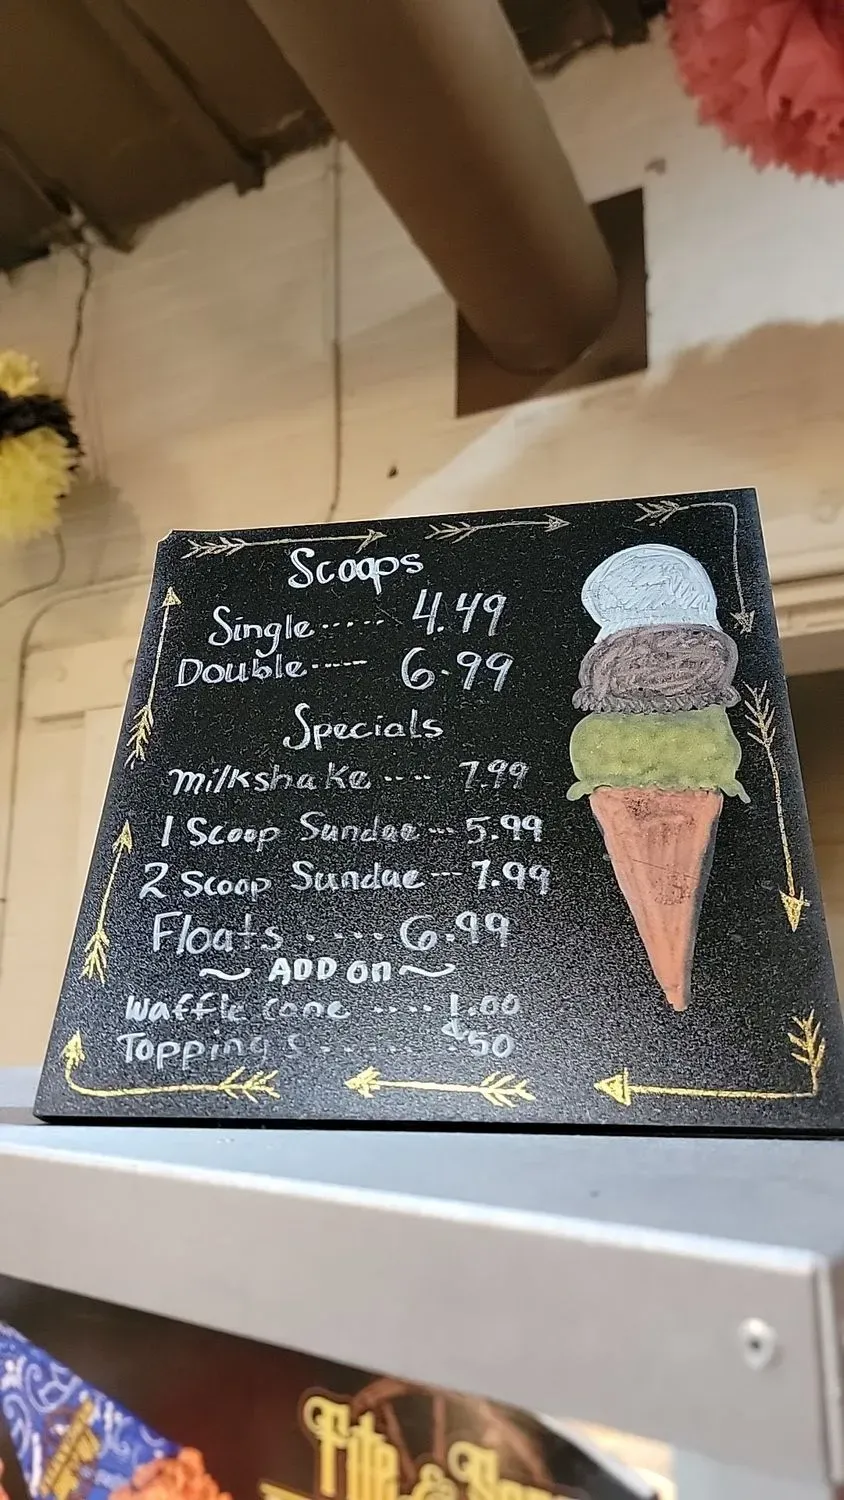 Scoops
Single ..... 4.49
Double ..... 6.99
Specials
milkshake .... 7.99
1 Scoop Sundae ... 5.99
2 Scoop Sundae ... 7.99
Floats ..... 6.99
~ ADD on ~
Waffle cone .... 1.00
Toppings ........ $50